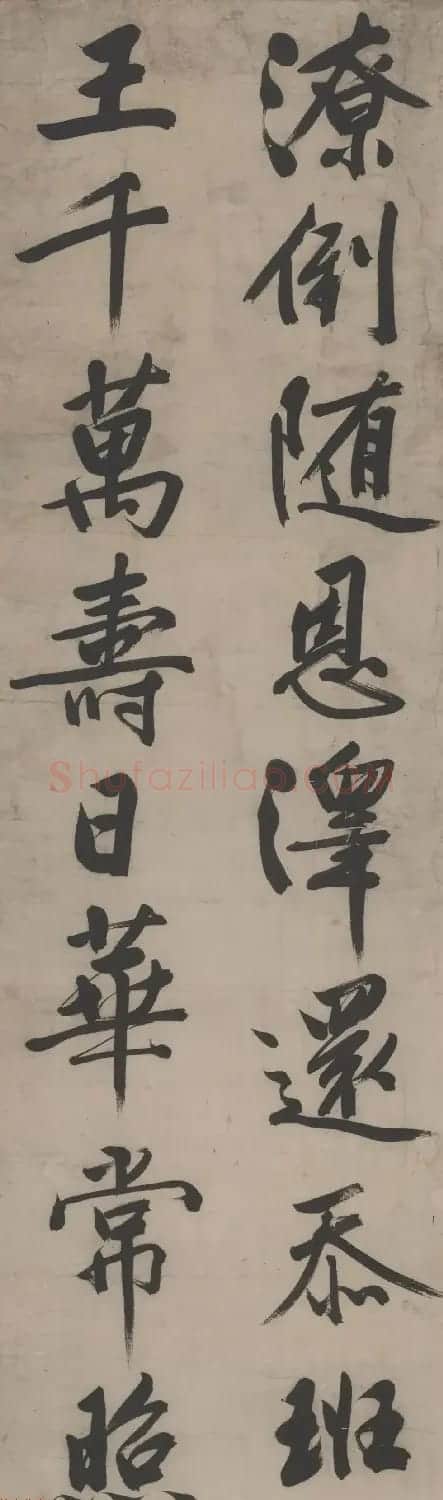 潦倒随恩澤還忝班
王千萬壽日華常昭
Shufaziliao.COM